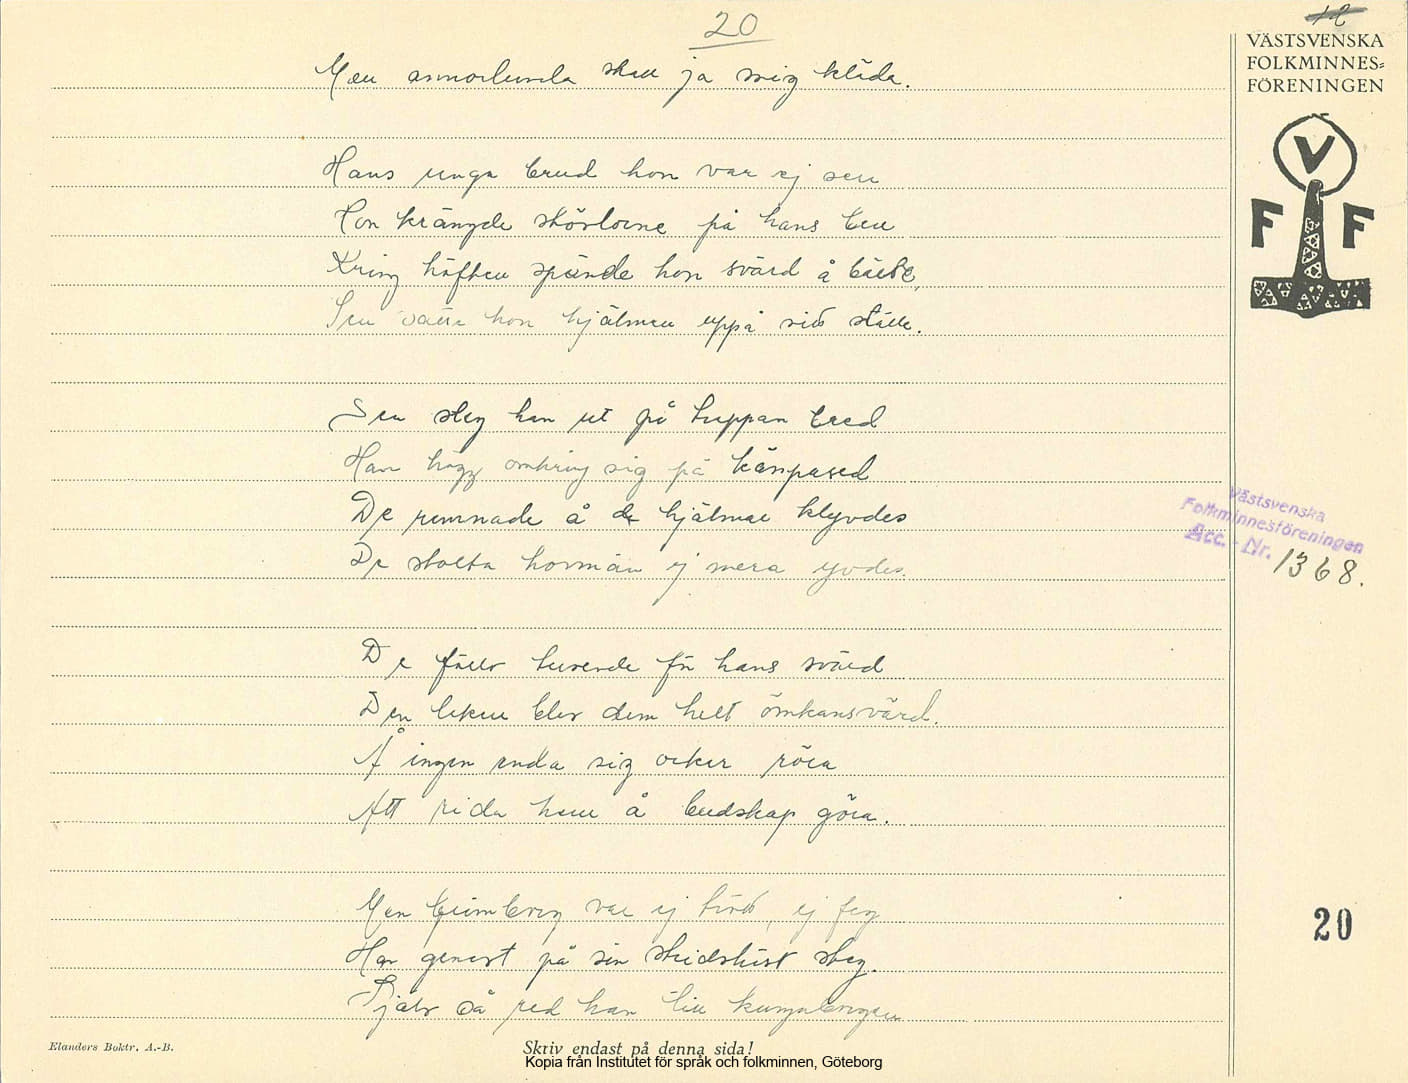 20
12
VÄSTSVENSKA
FOLKMINNES=
FÖRENINGEN
V
F F
Men annorlunda skall ja mig kläda.
Hans unga brud hon var ej sen
Hon krängde skörlorne på hans ben
Kring höften spände hon svärd å bälte,
Sen satte hon hjälmen uppå sitt ställe.
Sen steg han ut på tuppan bred
Han högg omkring sig på kämpased
De remnade å de hjälmar klyvdes
De stolta hovmän ej mera yvdes.
De föllo tusende för hans svärd
Den leken blev dem helt ömkansvärd.
Å ingen enda sig orker röra
Att rida hem å budskap göra.
Men Grimborg var ej trött, ej feg
Han genast på sin stridshäst steg.
Själv så red han till kungaborgen
Västsvenska
Folkminnesföreningen
Acc. - Nr. 1368.
20
Elanders Boktr. A.-B.
Skriv endast på denna sida!
Kopia från Institutet för språk och folkminnen, Göteborg